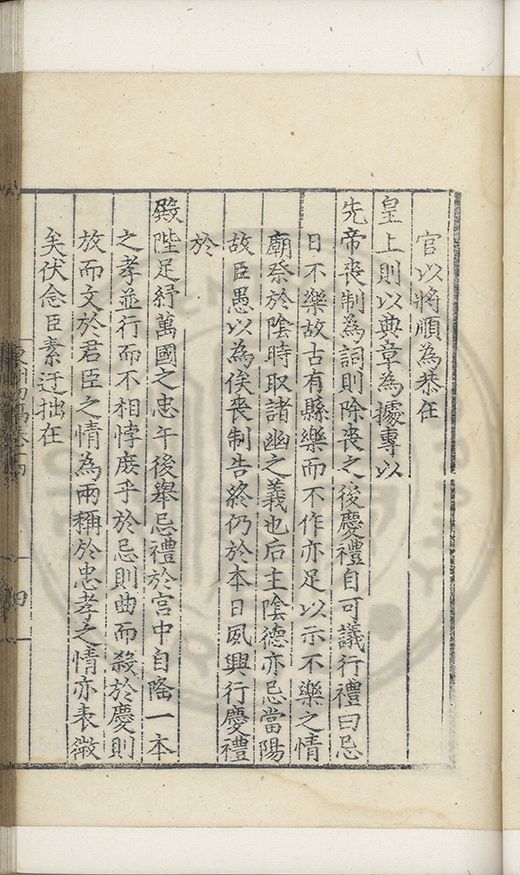 官以將順為恭在
皇上則以典章為據專以
先帝喪制為詞則除喪之後慶禮自可議行禮曰忌
日不樂故古有縣樂而不作亦足以示不樂之情
廟祭於陰時取諸幽之義也后主陰德亦忌當陽
故臣愚以為俟喪制告終仍於本日夙興行慶禮
於
殿陛足紓萬國之忠午後舉忌禮於宮中自隆一本
之孝並行而不相悖庶乎於忌則曲而殺於慶則
放而文於君臣之情為兩稱於忠孝之情亦表微
矣伏念臣素迂拙在
四